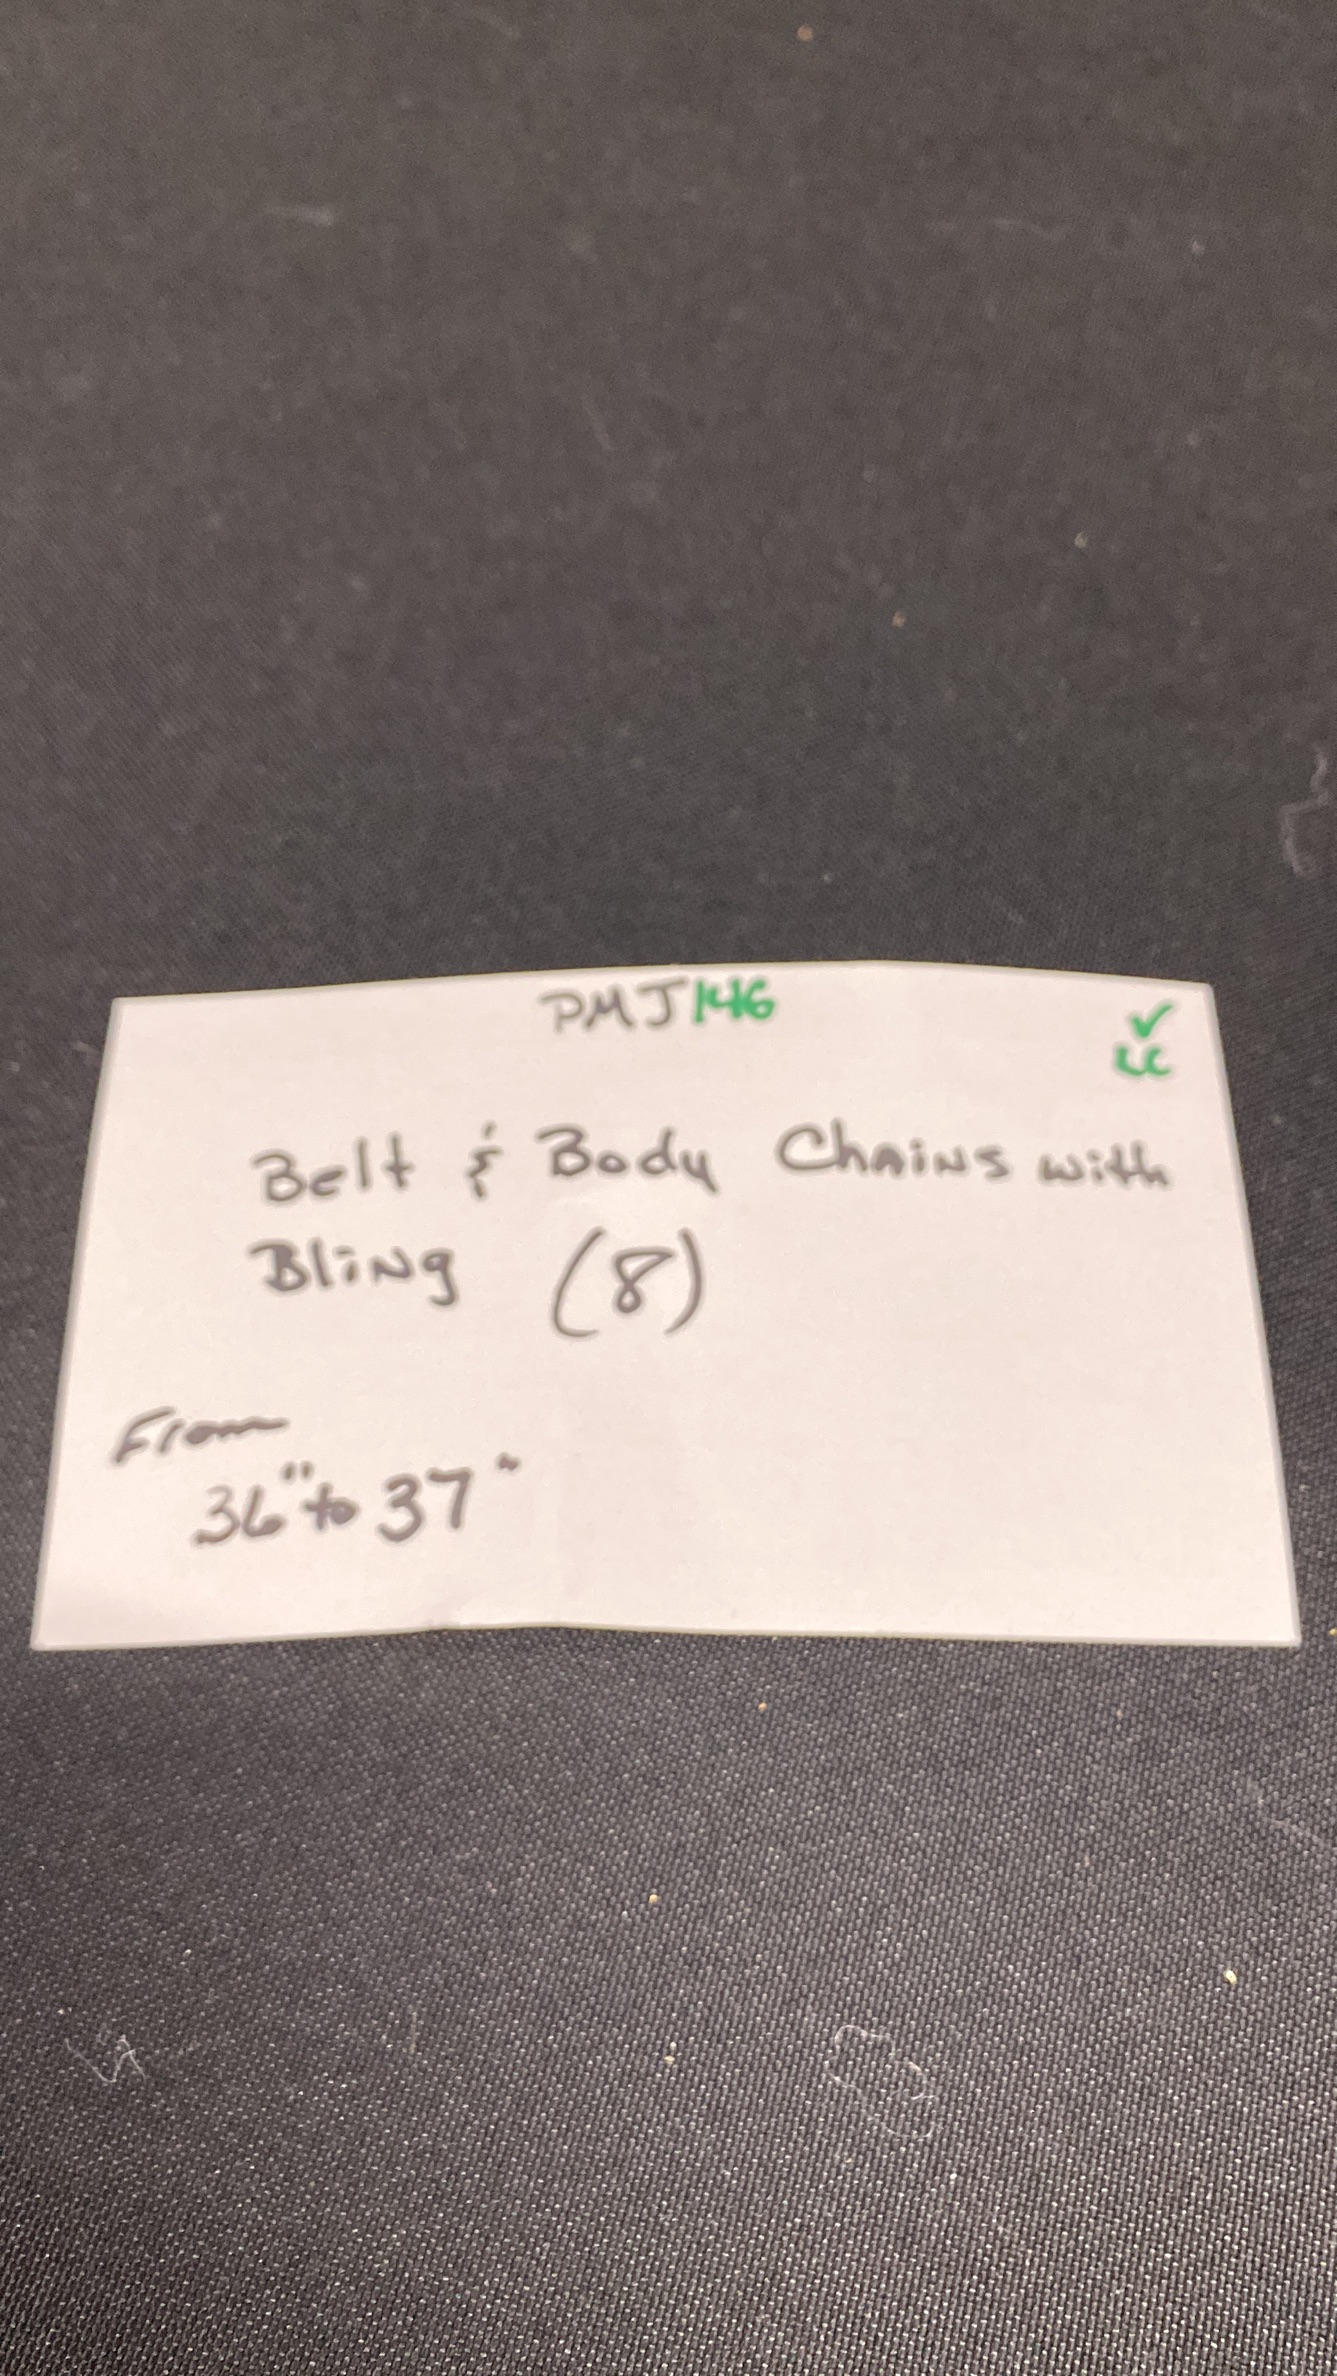 PMJ146 ✓
LC
Belt & Body Chains with
Bling (8)
From
36" to 37"